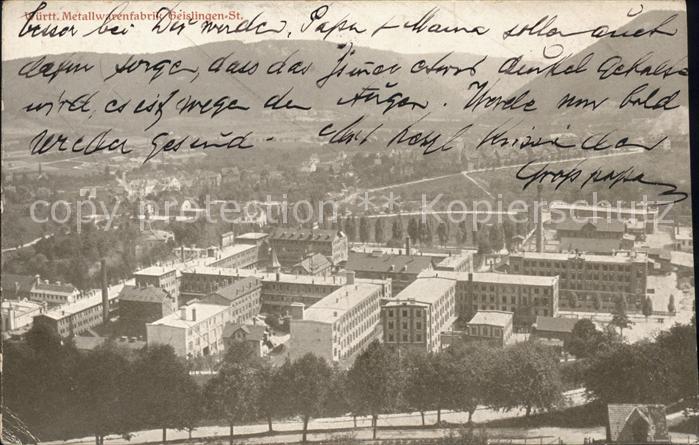 Württ. Metallwarenfabrik Geislingen-St.
besser bei Dir werden, Papa + Mama sollen auch
dafür sorgen, dass das Zimmer etwas dunkel gehalten
wird, es ist wegen den Augen. Werde nur bald
wieder gesund. Mit herzl. Küssen dein
Grosspapa
copy protection for